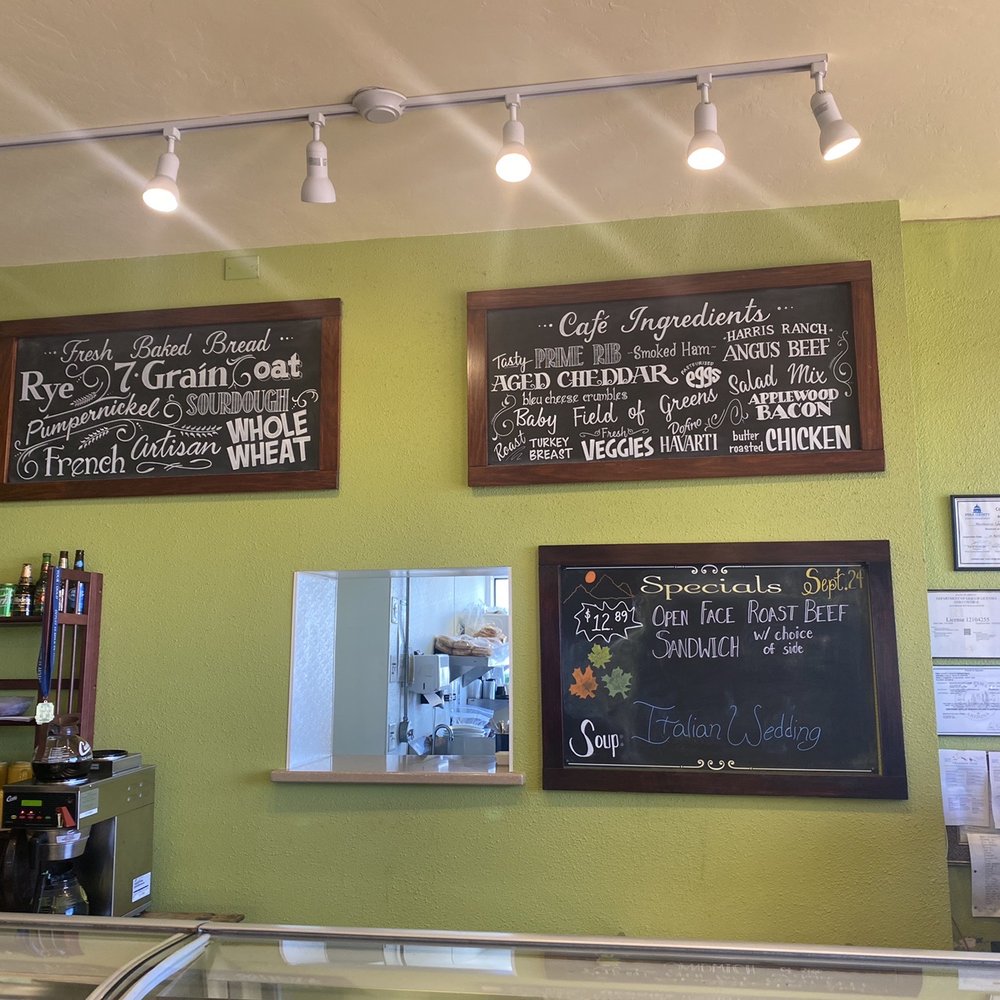 Fresh Baked Bread
Rye 7·Grain oat
Pumpernickel & SOURDOUGH
French Artisan WHOLE WHEAT
Café Ingredients
Tasty PRIME RIB -Smoked Ham- HARRIS RANCH ANGUS BEEF
AGED CHEDDAR PASTEURIZED eggs Salad Mix
bleu cheese crumbles
Baby Field of Greens APPLEWOOD BACON
Roast TURKEY BREAST Fresh VEGGIES Dofino HAVARTI butter roasted CHICKEN
Specials Sept. 24
$12.89 OPEN FACE ROAST BEEF
SANDWICH w/ choice of side
Soup: Italian Wedding
License 12104255